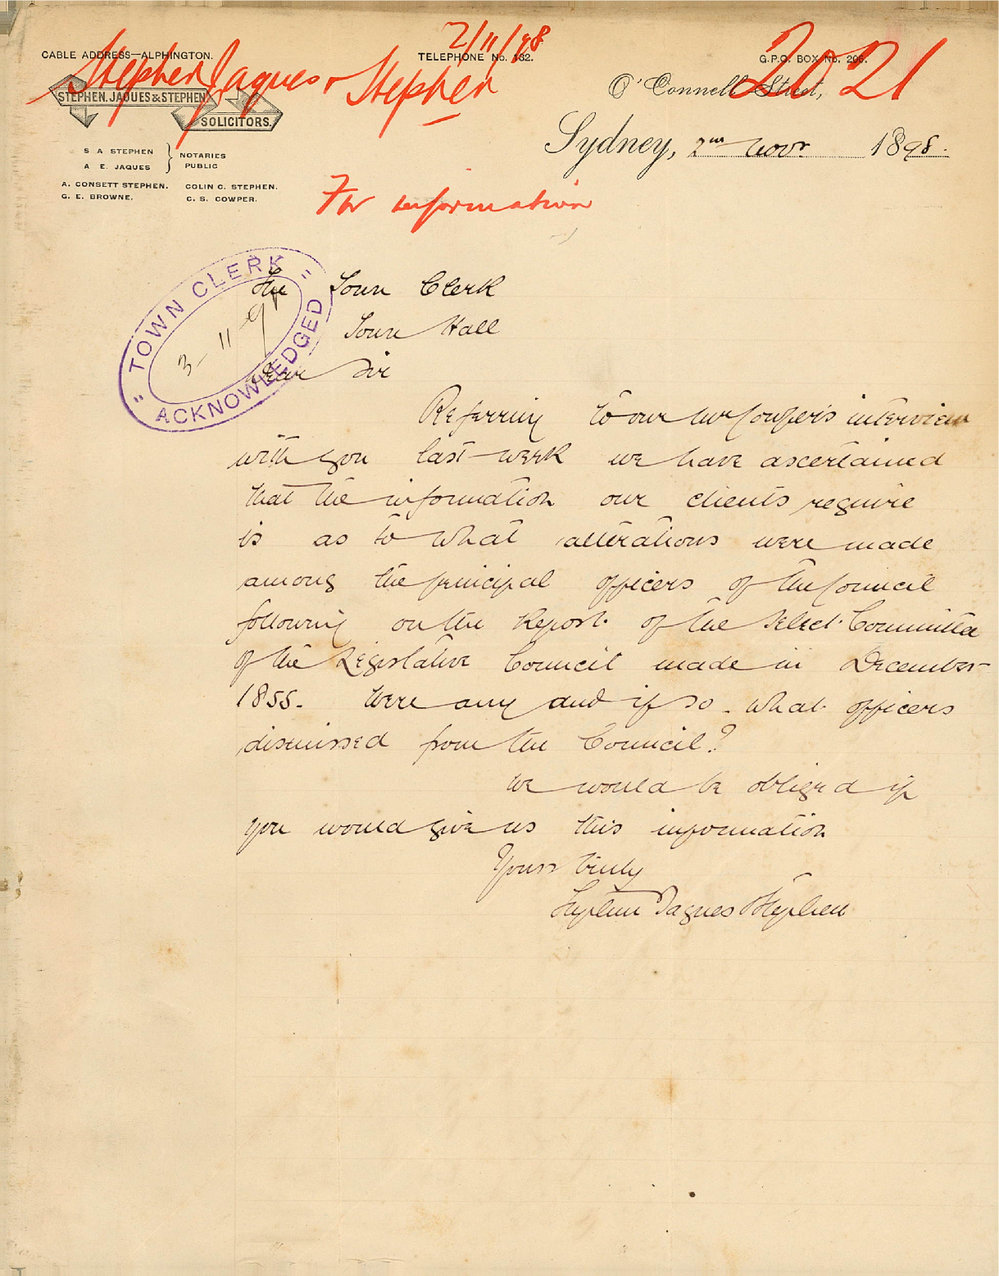 2/11/98
CABLE ADDRESS—ALPHINGTON.
TELEPHONE No. 132.
G.P.O. BOX No. 206.
Stephen Jaques & Stephen
2021
STEPHEN, JAQUES & STEPHEN
SOLICITORS.
O'Connell Street,
Sydney, 2nd Novr 1898.
S A STEPHEN
A. E. JAQUES
NOTARIES
PUBLIC
A. CONSETT STEPHEN. COLIN C. STEPHEN.
G. E. BROWNE. C. S. COWPER.
For information
"TOWN CLERK"
3-11-98
ACKNOWLEDGED
The Town Clerk
Town Hall
Dear Sir
Referring to our Mr Cowper's interview
with you last week we have ascertained
that the information our clients require
is as to what alterations were made
among the principal officers of the Council
following on the Report of the Select Committee
of the Legislative Council made in December
1855. Were any and if so what officers
dismissed from the Council?
We would be obliged if
you would give us this information
Yours truly
Stephen Jaques & Stephen